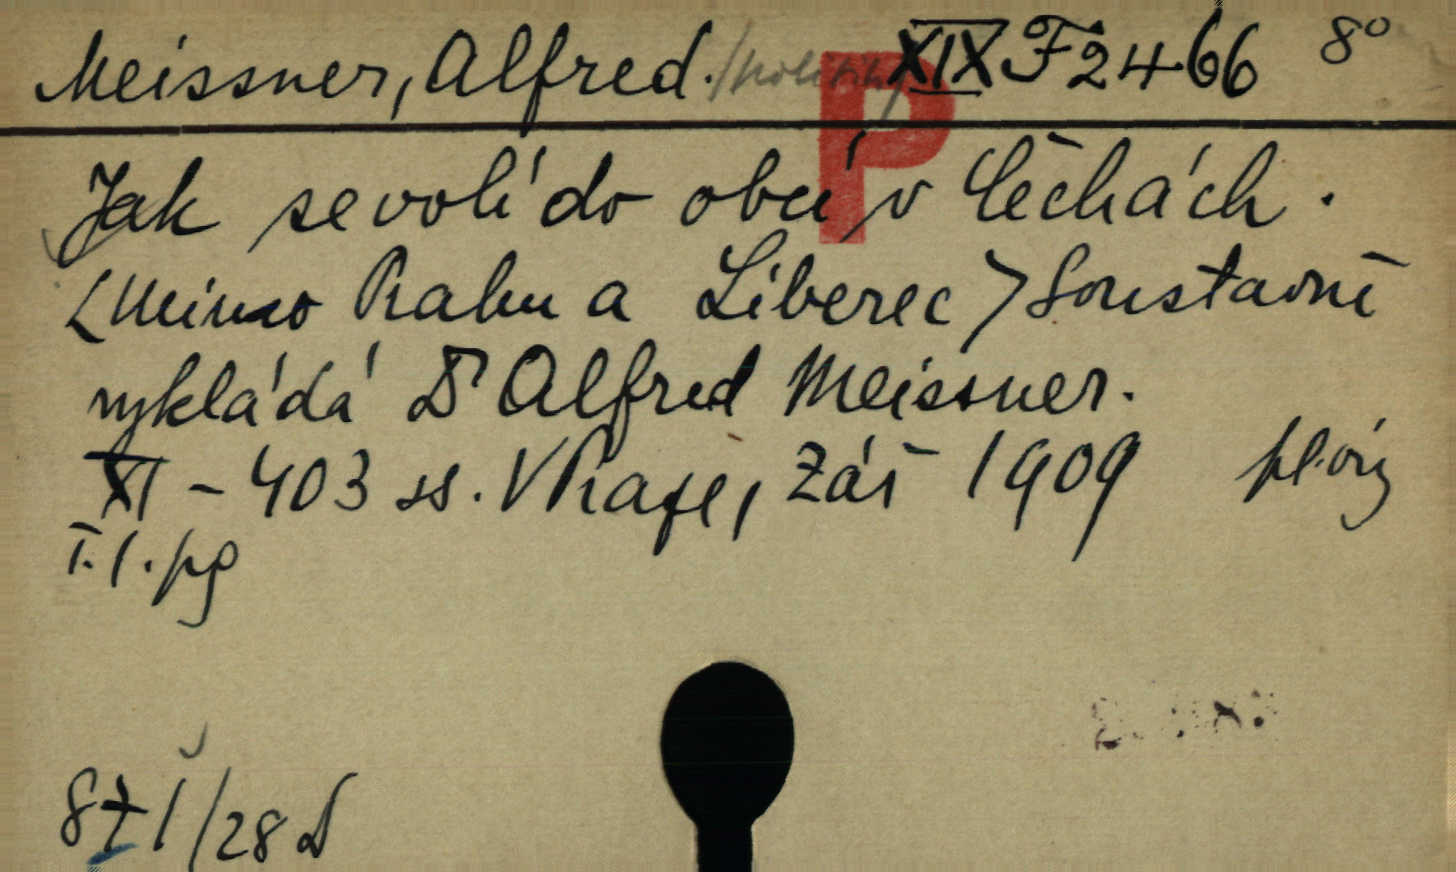 Meissner, Alfred. /politik/ XIX F 2466 8°
P
Jak se volí do obcí v Čechách.
<Mimo Prahu a Liberec> Soustavně
vykládá Dr Alfred Meissner.
XI - 403 ss. V Praze, Záři 1909
I. 1.
/28